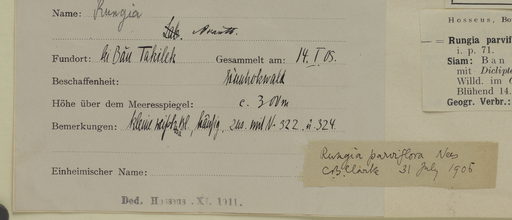 Name: Rungia
Fundort: bei Bān Takilek Gesammelt am: 14. I. 05.
Beschaffenheit:
Höhe über dem Meeresspiegel: c. 300m
Bemerkungen: kleine häufig, zus. mit N. 322. u. 324.
Einheimischer Name:
Ded. Hosseus XI. 1911.
Rungia parviflora Nees
C.B. Clarke 31 July 1906
Hosseus, Bo
= Rungia parvif
i. p. 71.
Siam: Ban
mit Diclipte
Willd. im
Blühend 14.
Geogr. Verbr.: